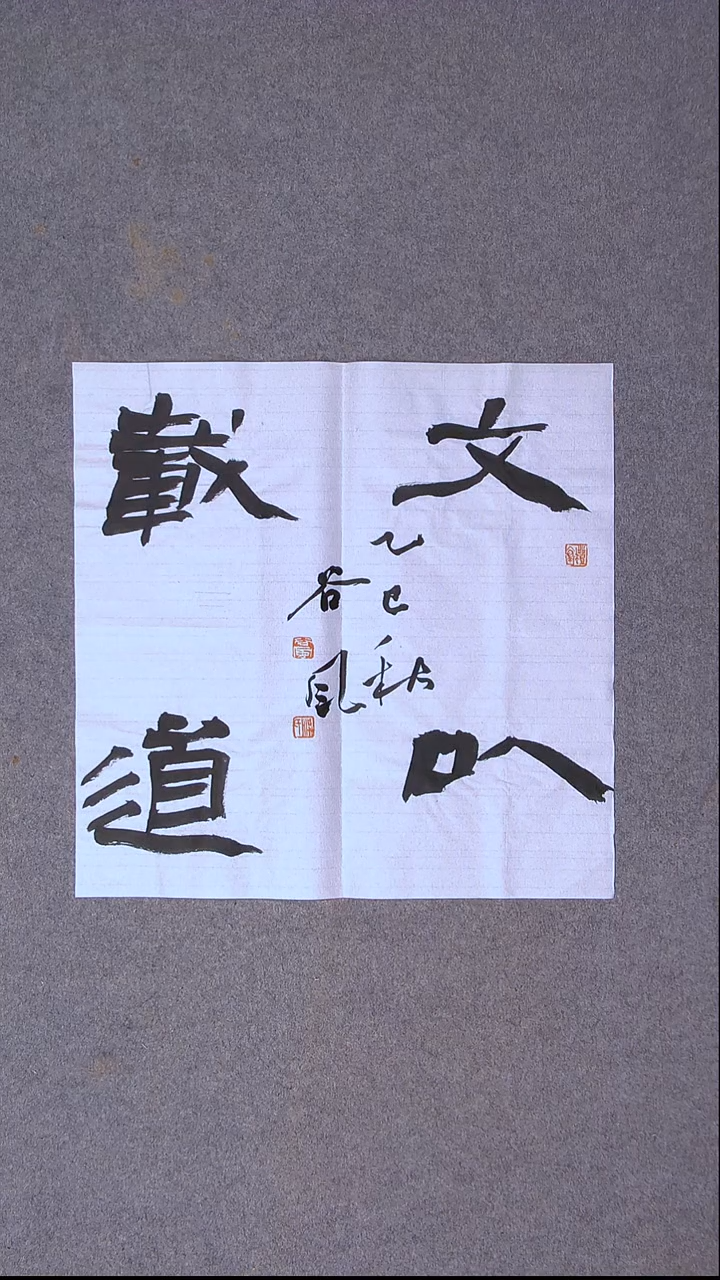 文以
載道
乙巳秋
谷風